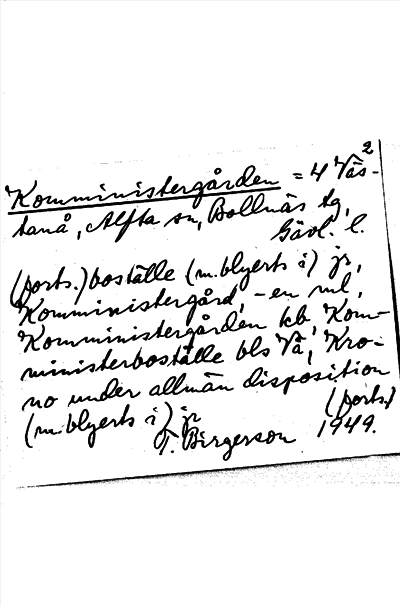 2
Komministergården = 4 Väs-
tanå, Alfta sn, Bollnäs tg,
Gävl. l.
(forts.) boställe (m. blyerts i) jr,
Komministergård, -en ml,
Komministergården kb, Kom-
ministerboställe bls Vä, Kro-
no under allmän disposition
(m. blyerts i) jr (forts.)
T. Birgerson 1949.